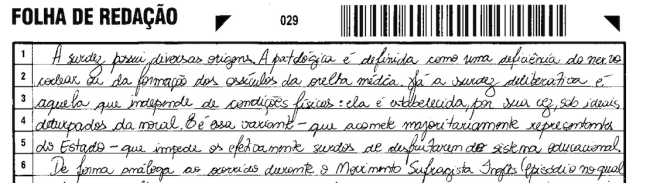 FOLHA DE REDAÇÃO
029
1 A surdez possui diversas origens. A patológica é definida como uma deficiência do nervo
2 coclear ou da formação dos ossículos da orelha média. Já a surdez deliberativa é
3 aquela que independe de condições físicas: ela é estabelecida, por sua vez, sob ideais
4 deturpados da moral. E é essa variante - que acomete majoritariamente representantes
5 do Estado - que impede os efetivamente surdos de desfrutarem do sistema educacional.
6 De forma análoga ao ocorrido durante o Movimento Sufragista Inglês (episódio no qual